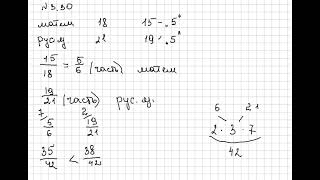 №3.30
матем 18 15 - „5"
рус.яз 21 19 - „5"
15/18 = 5/6 (часть) матем
19/21 (часть) рус.яз.
7 2
5/6 19/21
35/42 < 38/42
6 21
2 · 3 · 7
42